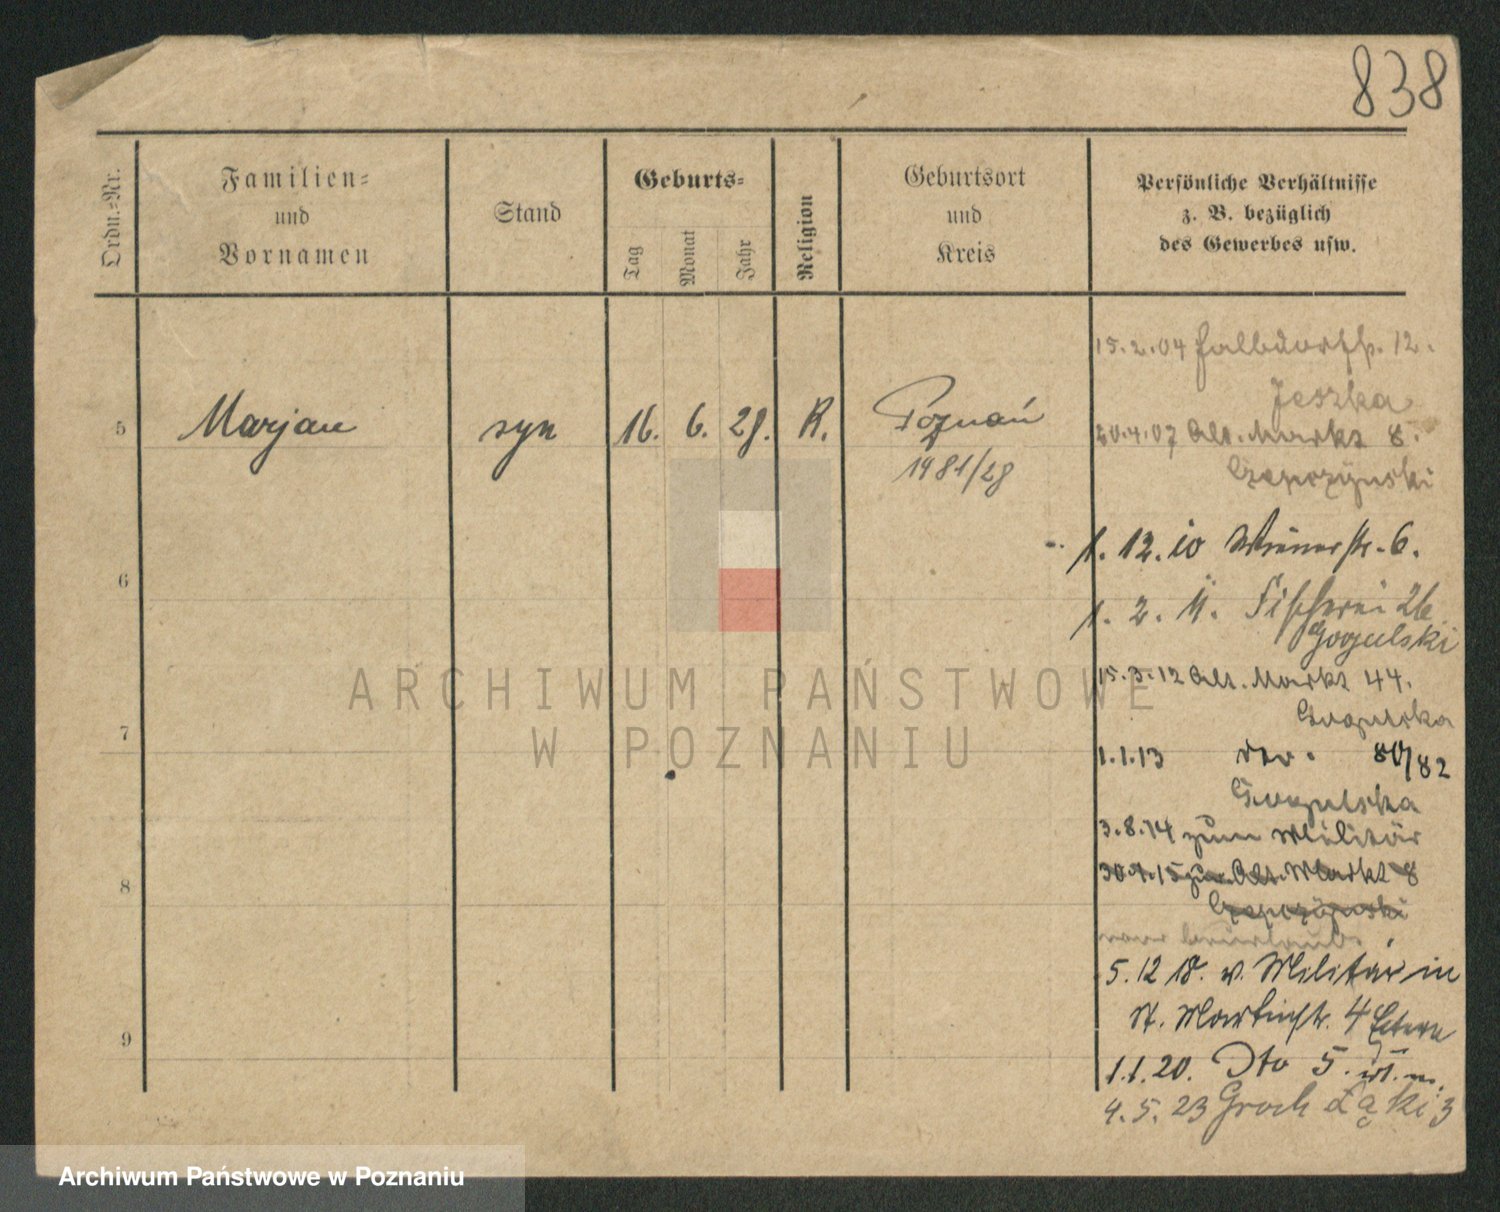 838
Ordn.-Nr.
Familien-
und
Vornamen
Stand
Geburts-
Tag
Monat
Jahr
Religion
Geburtsort
und
Kreis
Persönliche Verhältnisse
z. B. bezüglich
des Gewerbes usw.
5
Marjan
syn
16.
6.
28.
R.
Poznań
1981/28
6
7
8
9
15.2.04 Halbdorfstr. 12.
Jeszka
20.4.07 Alt. Markt 8.
Czapczynski
1.12.10 Wienerstr. 6.
1.2.11. Fischerei 26
Gogulski
15.3.12 Alt. Markt 44.
Gogulska
1.1.13 dto. 80/82
Gogulska
3.8.14 zum Militär
30.4.15 zur. Alt. Markt 8
Czapczynski
beurlaubt.
5.12 18. v. Militär in
St. Martinstr. 4 Eltern
1.1.20. Dto 5.
4.5.23 Groch Łąki 3
ARCHIWUM PAŃSTWOWE
W POZNANIU
Archiwum Państwowe w Poznaniu